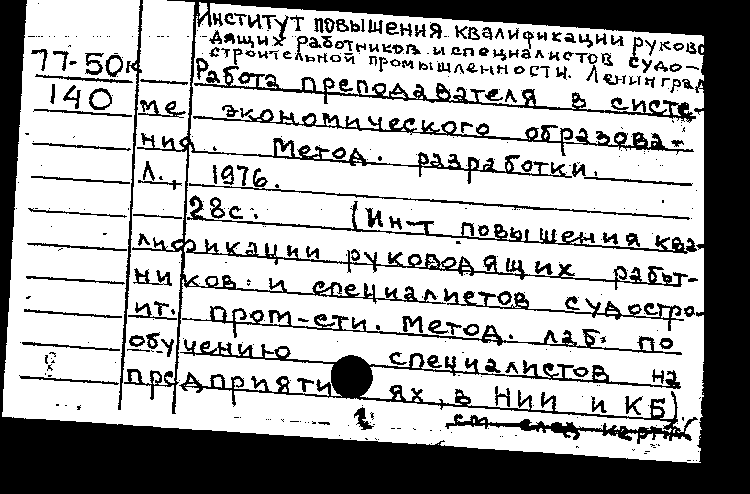 Институт повышения квалификации руково
дящих работников и специалистов судо-
строительной промышленности. Ленинград
77-50к
140
Работа преподавателя в систе-
ме экономического образова-
ния. Метод. разработки.
Л., 1976.
28с. (Ин-т повышения ква-
лификации руководящих работ-
ников и специалистов судостро-
ит. пром-сти. Метод. лаб. по
обучению специалистов на
предприятиях, в НИИ и КБ)
см след карт